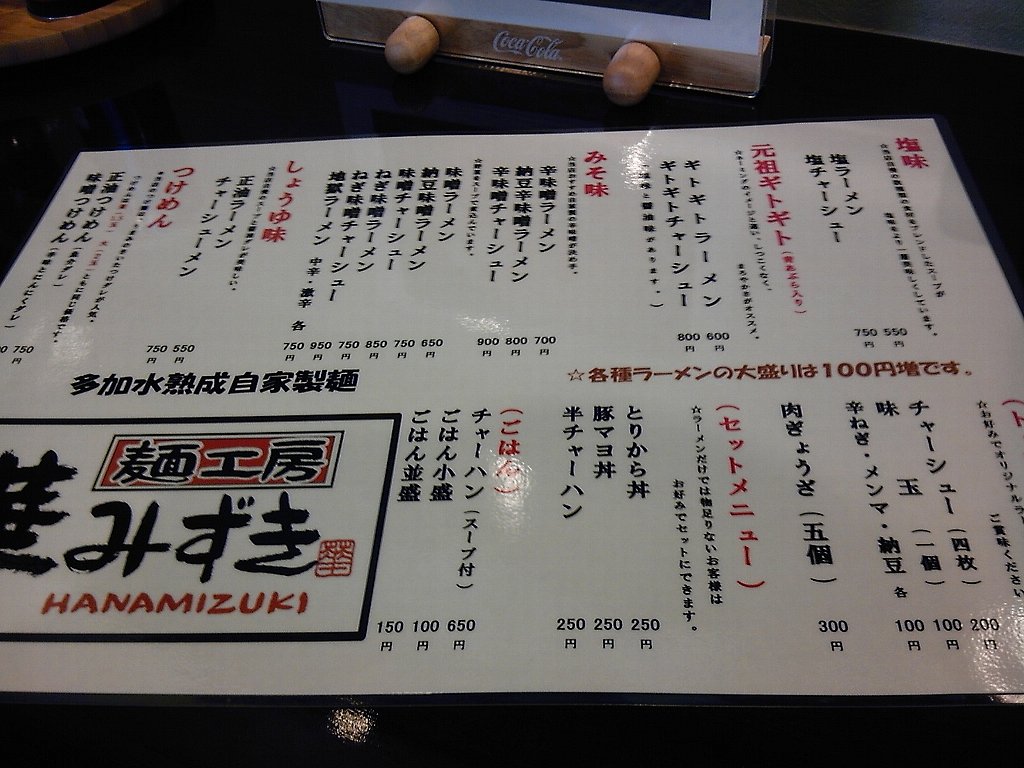 Coca-Cola
塩味
塩ラーメン
550円
塩チャーシュー
750円
元祖ギトギト(背あぶら入り)
☆ネーミングのイメージと違い、しつこくなく、
まろやかさがオススメ。
ギトギトラーメン
600円
ギトギトチャーシュー
800円
みそ味
辛味噌ラーメン
700円
納豆辛味噌ラーメン
800円
辛味噌チャーシュー
900円
味噌ラーメン
650円
納豆味噌ラーメン
750円
味噌チャーシュー
850円
ねぎ味噌ラーメン
750円
ねぎ味噌チャーシュー
950円
地獄ラーメン 中辛・激辛 各
750円
しょうゆ味
正油ラーメン
550円
チャーシューメン
750円
つけめん
正油つけめん
750円
味噌つけめん
☆各種ラーメンの大盛りは100円増です。
☆お好みでオリジナルラー
ご賞味ください
チャーシュー(四枚)
200円
味玉(一個)
100円
辛ねぎ・メンマ・納豆 各
100円
肉ぎょうざ(五個)
300円
(セットメニュー)
☆ラーメンだけでは物足りないお客様は
お好みでセットにできます。
とりから丼
250円
豚マヨ丼
250円
半チャーハン
250円
(ごはん)
チャーハン(スープ付)
650円
ごはん小盛
100円
ごはん並盛
150円
多加水熟成自家製麺
麺工房
華みずき
HANAMIZUKI